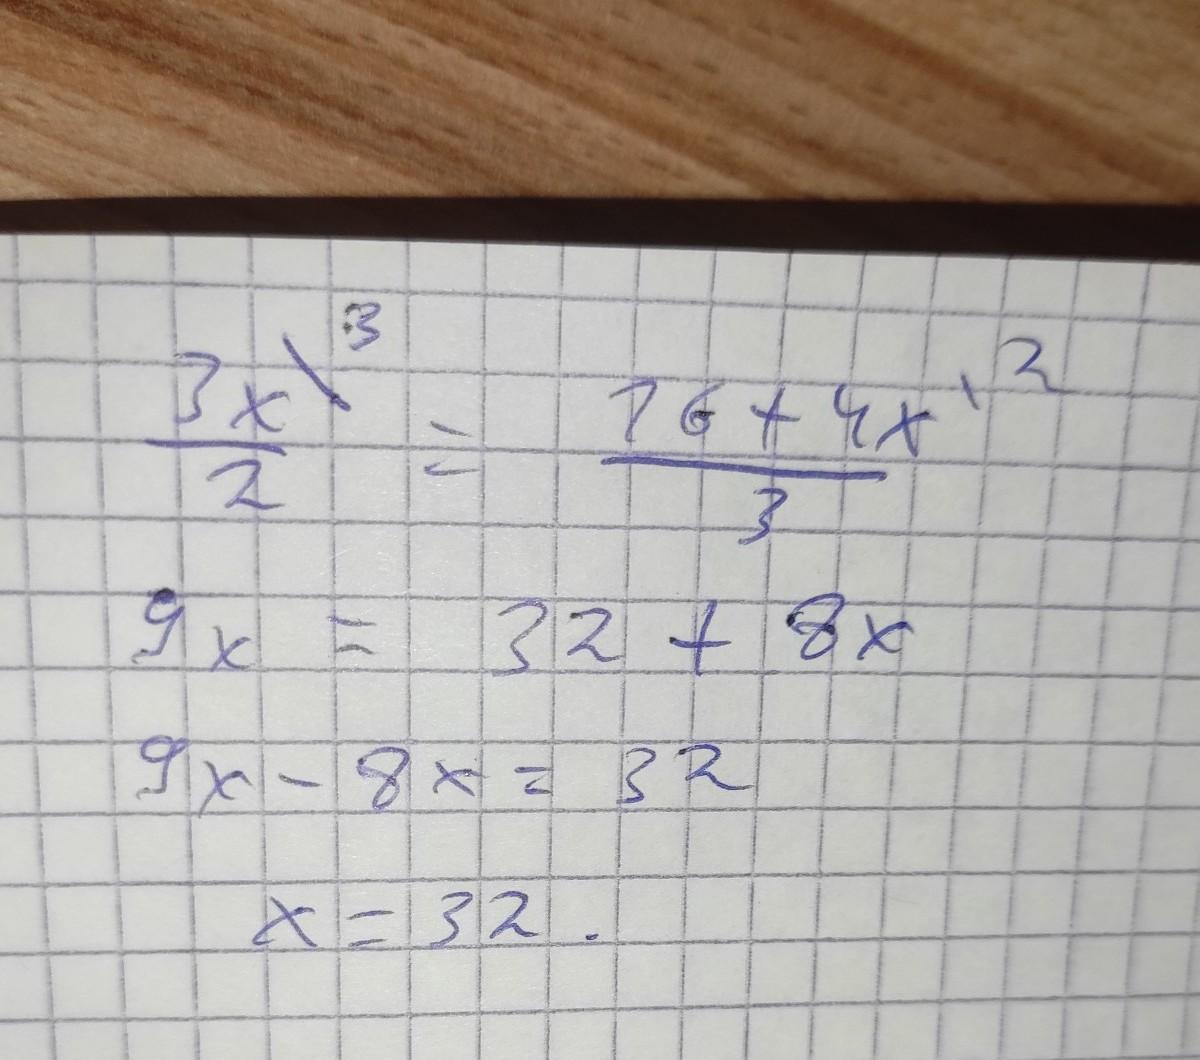 3x\3 / 2 = 16 + 4x\2 / 3
9x = 32 + 8x
9x - 8x = 32
x = 32.